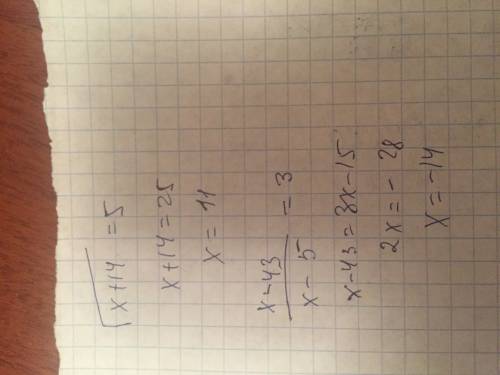 √x+14 = 5
x+14=25
x = 11
x-43
x-5
= 3
x-43=3x-15
2x=-28
x=-14